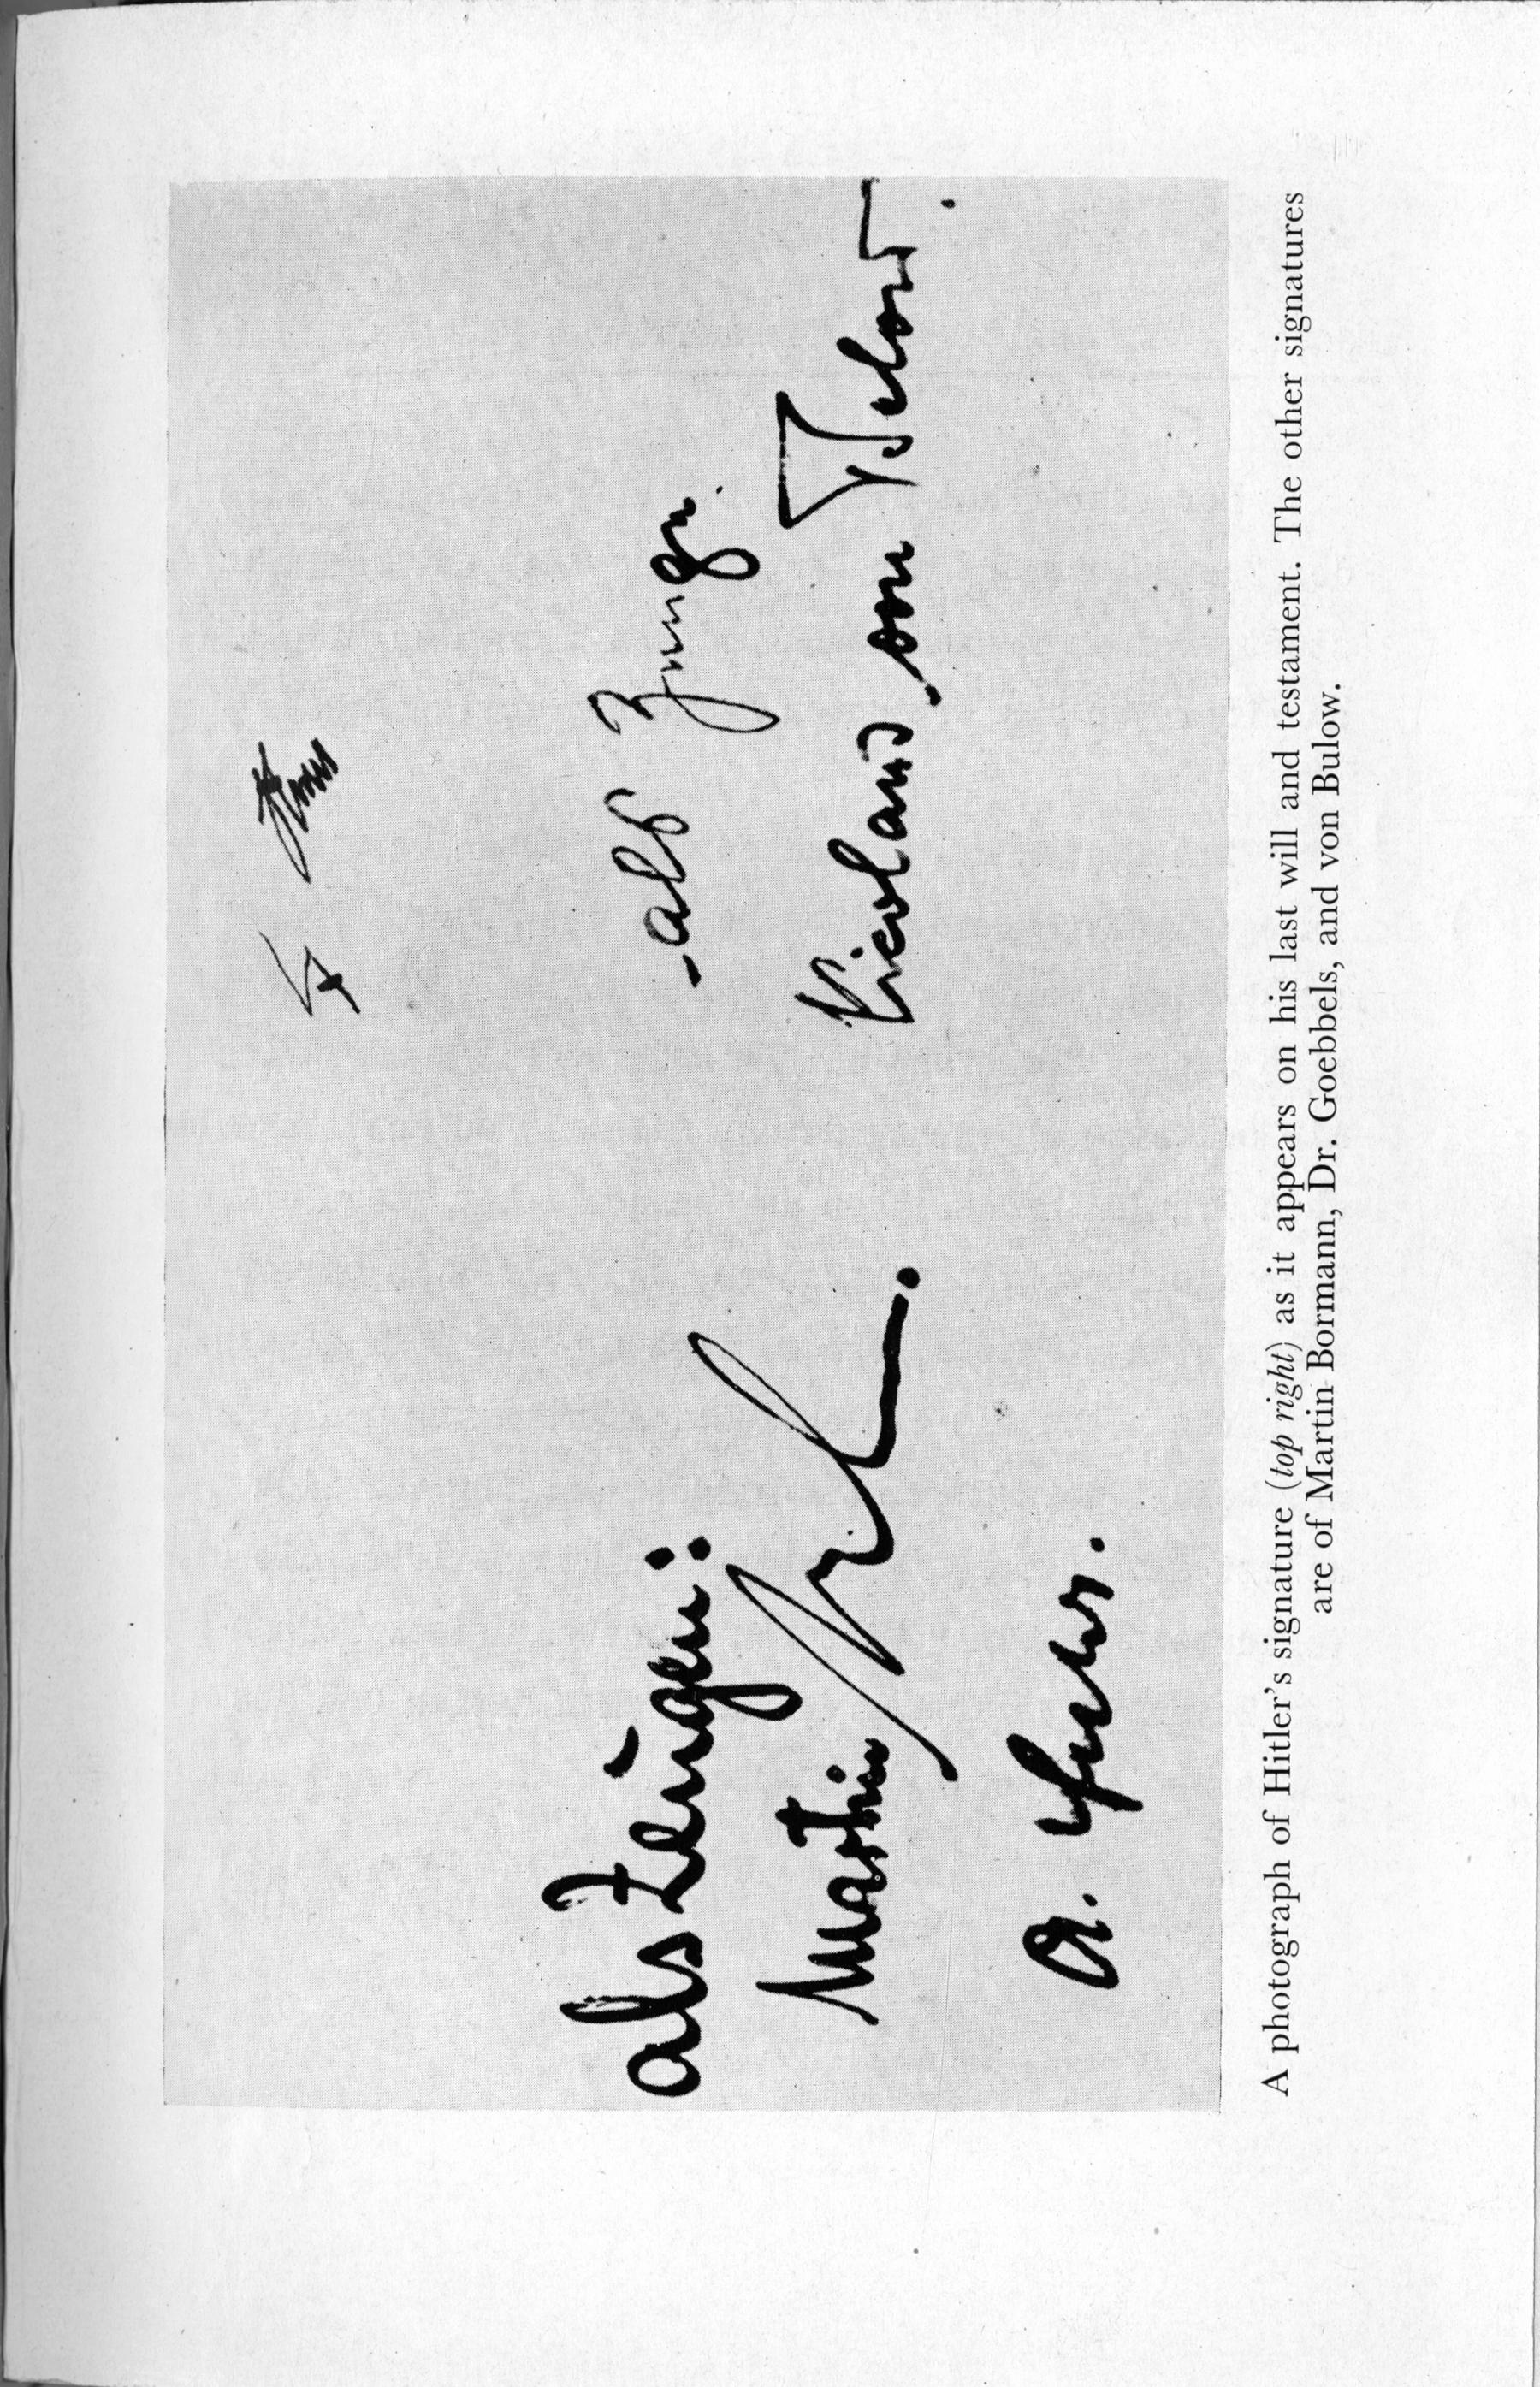 als Zeugen:
Martin
als Zeuge.
Nicolaus von Below.
A photograph of Hitler's signature (top right) as it appears on his last will and testament. The other signatures
are of Martin Bormann, Dr. Goebbels, and von Bulow.